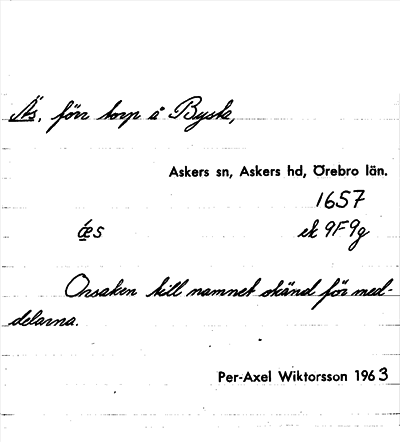 Äs, förr torp å Bysta,
Askers sn, Askers hd, Örebro län.
1657
ǽ̱s ek 9F9g
Orsaken till namnet okänd för med-
delarna.
Per-Axel Wiktorsson 1963